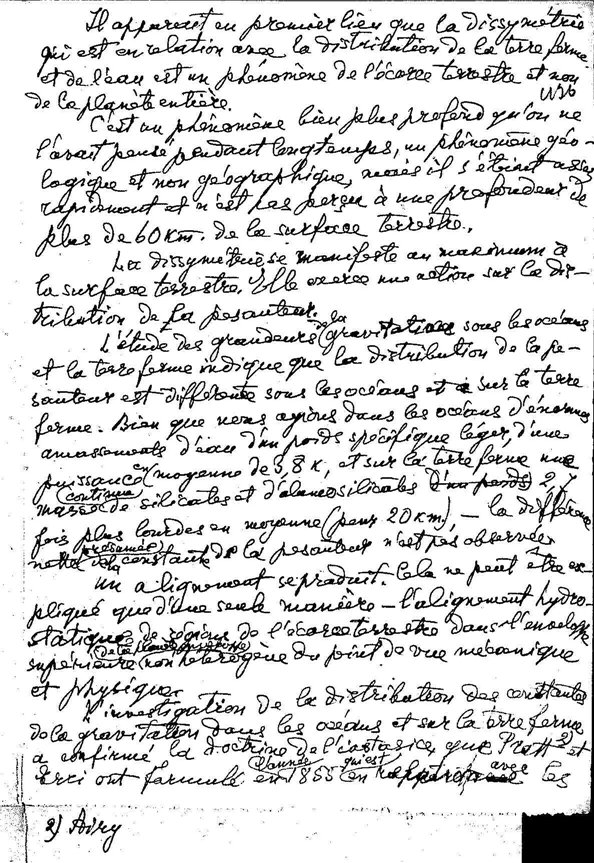 Il apparait en premier lieu que la dissymétrie
qui est en relation avec la distribution de la terre ferme
et de l'eau est un phénomène de l'écorce terrestre et non
de la planète entière.
C'est un phénomène bien plus profond qu'on ne
l'avait pensé pendant longtemps, un phénomène géo-
logique et non géographique, mais il s'éteint assez
rapidement et n'est pas perçu à une profondeur de
plus de 60 km. de la surface terrestre.
La dissymétrie se manifeste au maximum à
la surface terrestre. Elle exerce une action sur la dis-
tribution de la pesanteur.
L'étude des grandeurs de la gravitation sous les océans
et la terre ferme indique que la distribution de la pe-
santeur est différente sous les océans et sur la terre
ferme. Bien que nous ayions dans les océans d'énormes
amassements d'eau d'un poids spécifique léger, d'une
puissance en moyenne de 3,8 k, et sur la terre ferme une
masse continue de silicates et d'alumosilicates d'un poids 2,7
fois plus lourdes en moyenne (pour 20 km), — la différence
notte présumée des constantes de la pesanteur n'est pas observée
Un alignement se produit. Cela ne peut être ex-
pliqué que d'une seule manière — l'alignement hydro-
statique de régions de l'écorce terrestre dans l'enveloppe
supérieure (non hétérogène du point de vue mécanique
et physique.
L'investigation de la distribution des constantes
de la gravitation dans les océans et sur la terre ferme
a confirmé la doctrine de l'isostasie, que Pratt 2) et
Erri ont formulé en l'année 1855 qui est en rapport avec les
2) Airy